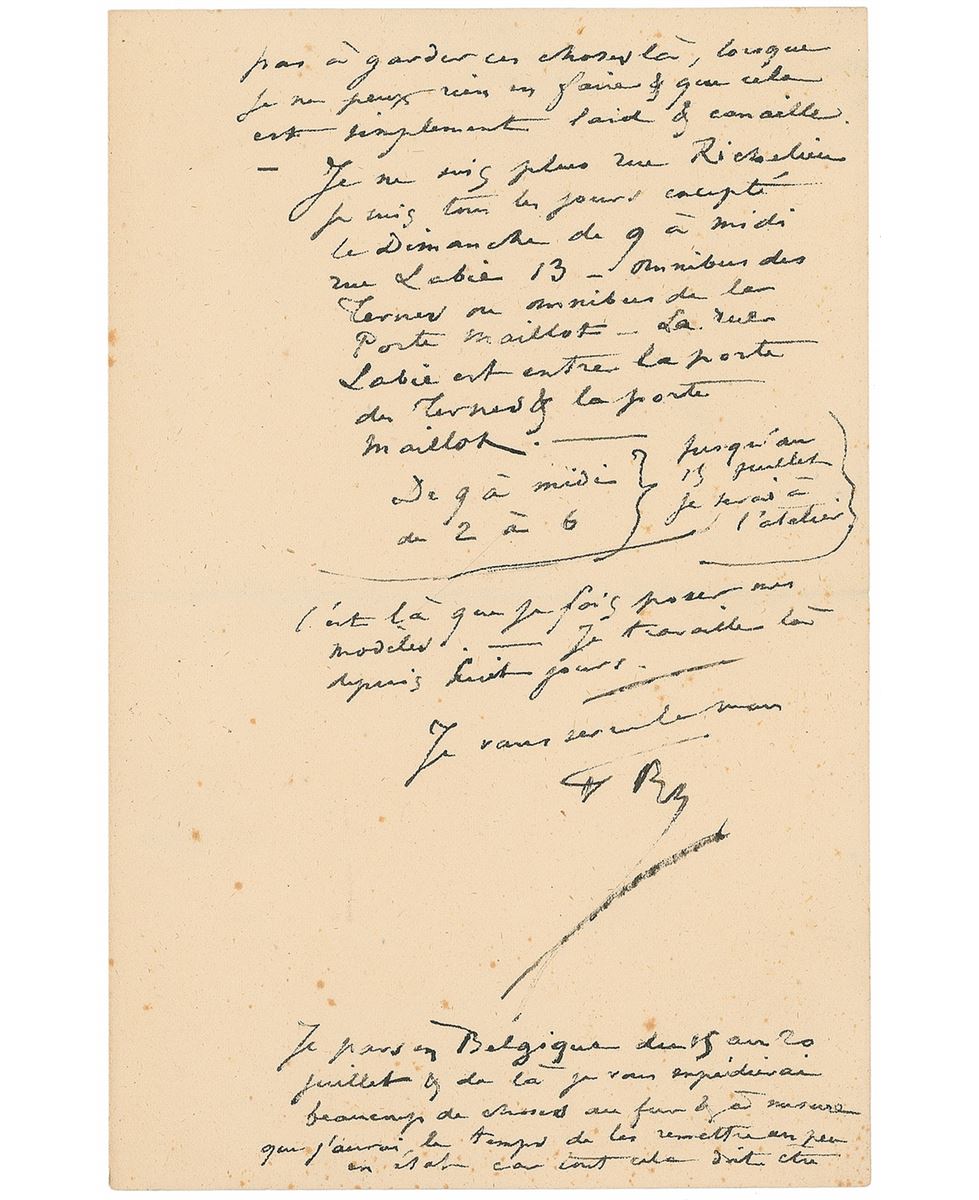 pas à garder ces choses là, lorsque
je ne peux rien en faire & que cela
est simplement laid & canaille.
— Je ne suis plus rue Richelieu
je suis tous les jours excepté
le Dimanche de 9 à midi
rue Labie 13 — omnibus des
Ternes ou omnibus de la
Porte Maillot — La rue
Labie est entre la porte
des Ternes & la porte
Maillot. —
De 9 à midi
de 2 à 6
jusqu'au
15 juillet
je serai à
l'atelier
C'est là que je fais poser mes
modèles. — Je travaille là
depuis huit jours.
Je vous serre la main
Je pars en Belgique du 15 au 20
juillet & de là je vous expédierai
beaucoup de choses au fur & à mesure
que j'aurai le temps de les remettre un peu
en état car tout cela doit être